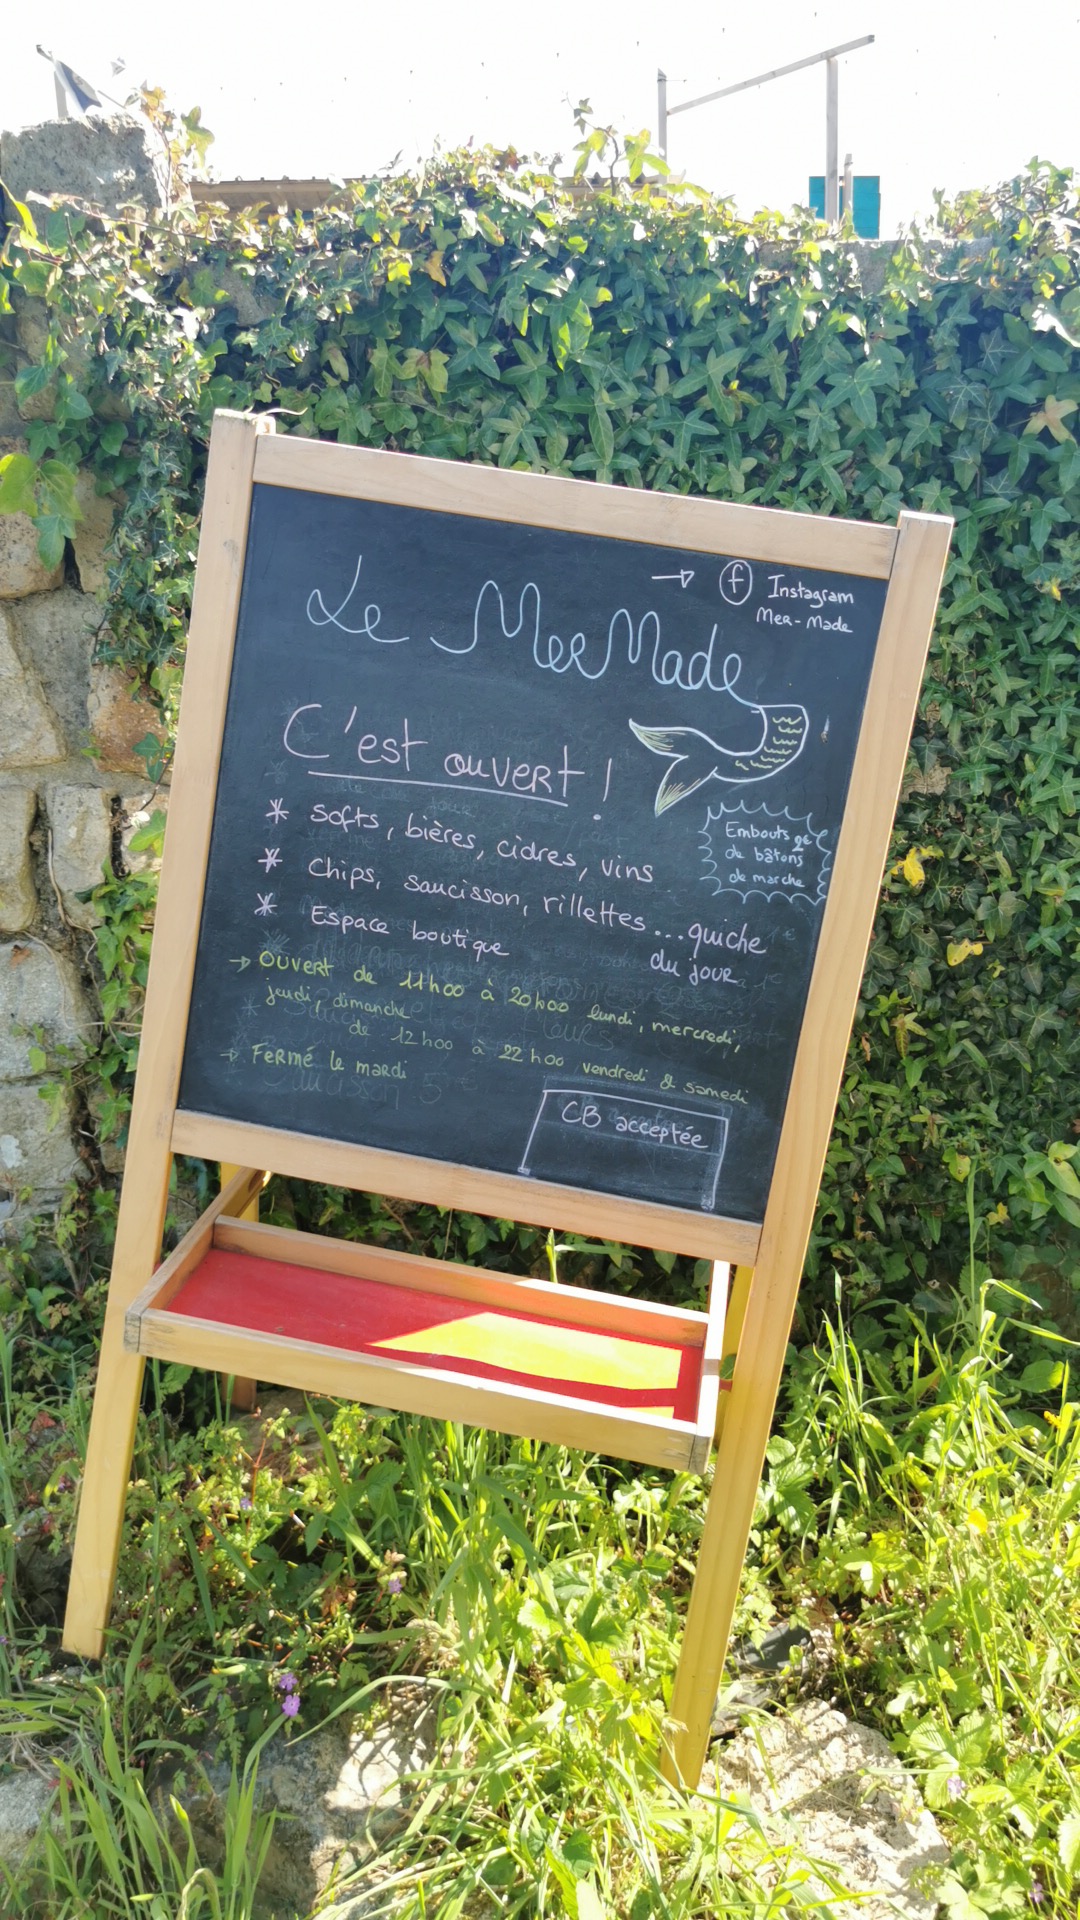 → f Instagram
Mer-Made
Le MerMade
C'est ouvert !
* Softs, bières, cidres, vins
* Chips, saucisson, rillettes... quiche
du jour
* Espace boutique
Embouts
de bâtons
de marche
→ Ouvert de 11h00 à 20h00 lundi, mercredi,
jeudi, dimanche
de 12h00 à 22h00 vendredi & samedi
→ Fermé le mardi
CB acceptée